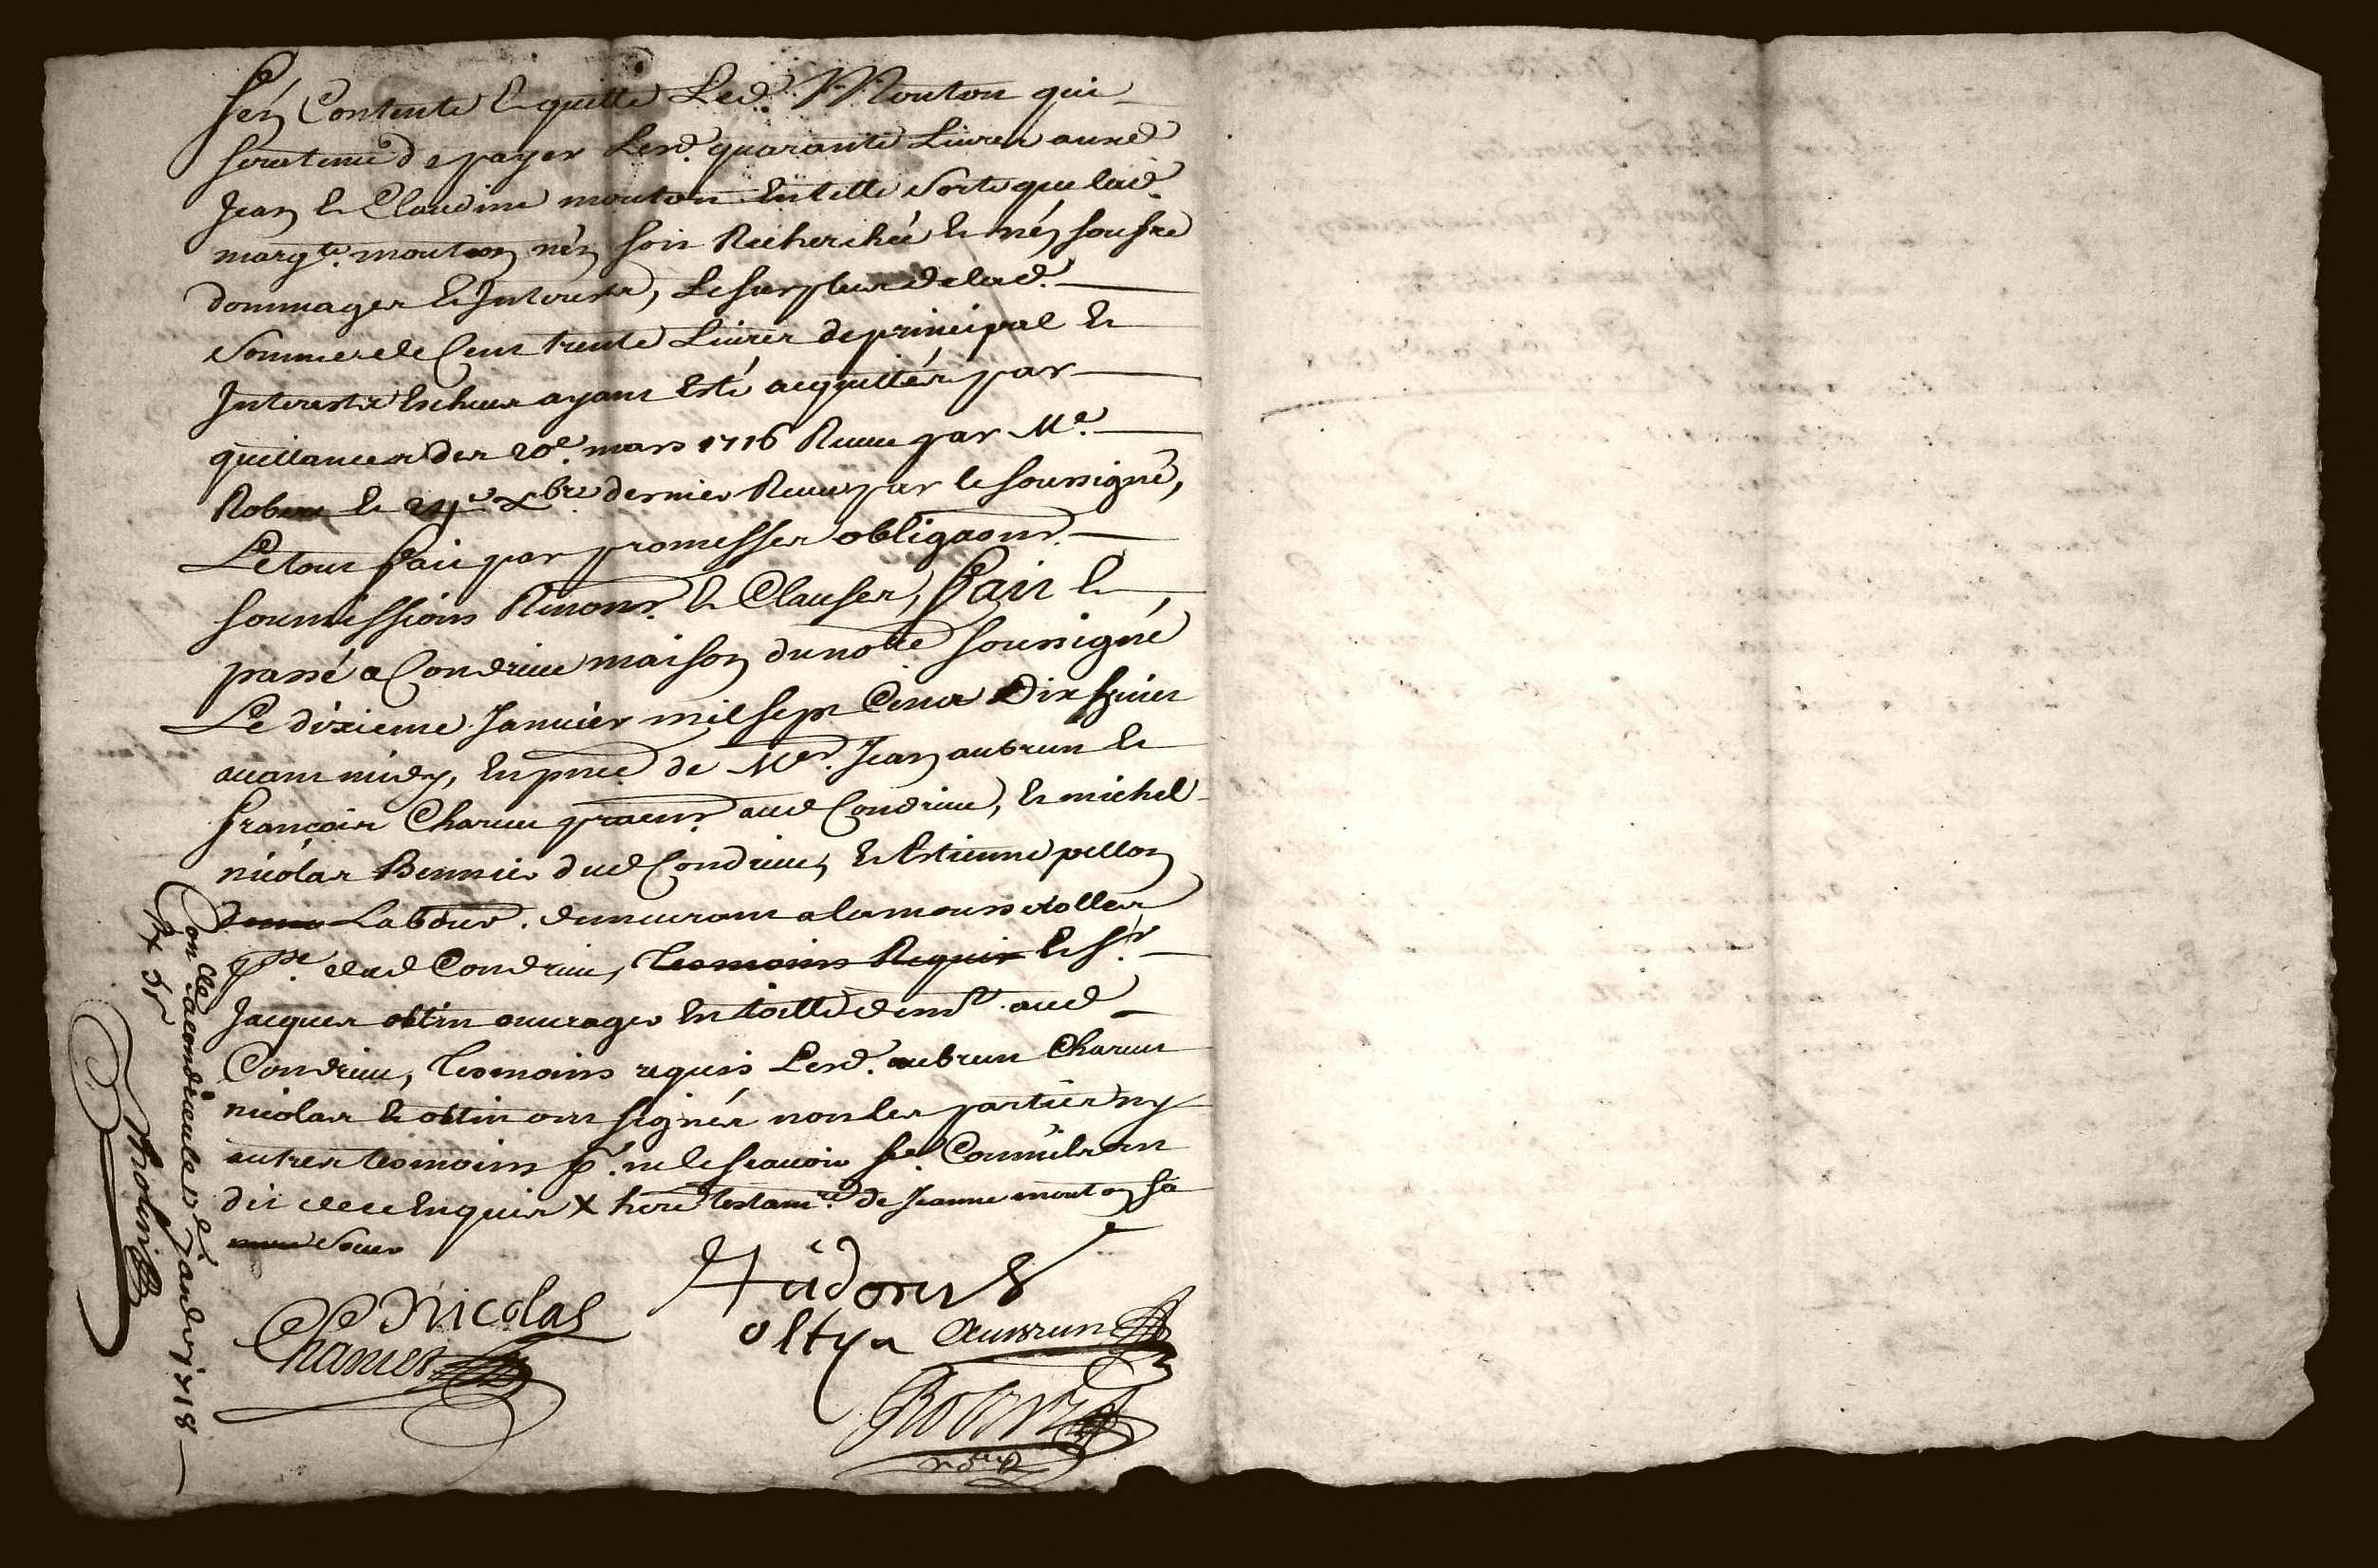 s'en Contente & quitte Led. Mouton qui
sera tenu de payer Lesd. quarante Livres ausd
Jean & Claudine mouton En telle sorte que lad.
margte. mouton n'en soit Recherchée & n'en soufre
dommages & Interests, Le surplus de lad.
Somme de Cent trente Livres de principal &
Interests Escheus ayant Esté acquittés par
quittances des 20e. mars 1716 Receue par Me.
Robert & Xbre dernier Receue par le soussigné,
Le tout fait par promesses obligaons.
soumissions Renons. & Clauses, Fait &
passé a Condrieu maison du notre soussigné
Le dixieme Janvier mil sept Cents Dix huict
avant midy, En pnce de Mes. Jean aubrun &
françois Charvet praens. aud Condrieu, & michel
nicolas dud Condrieu, & Estienne pellon
Labour. demeurant a
psse dud Condrieu, Tesmoins Requis & Sr.
Jacques oltin ouvrager En toille demt. aud
Condrieu, Tesmoins requis Lesd. aubrun Charvet
nicolas & oltin ont signés non les parties ny
autres tesmoins pr. ne le scavoir
dit de ce Enquis X here testamre. de Jeanne mouton sa
Soeur
Nicolas
oltin Aubrun
Charvet
Robert
nore
Conlé a condrieu le Janvier 1718